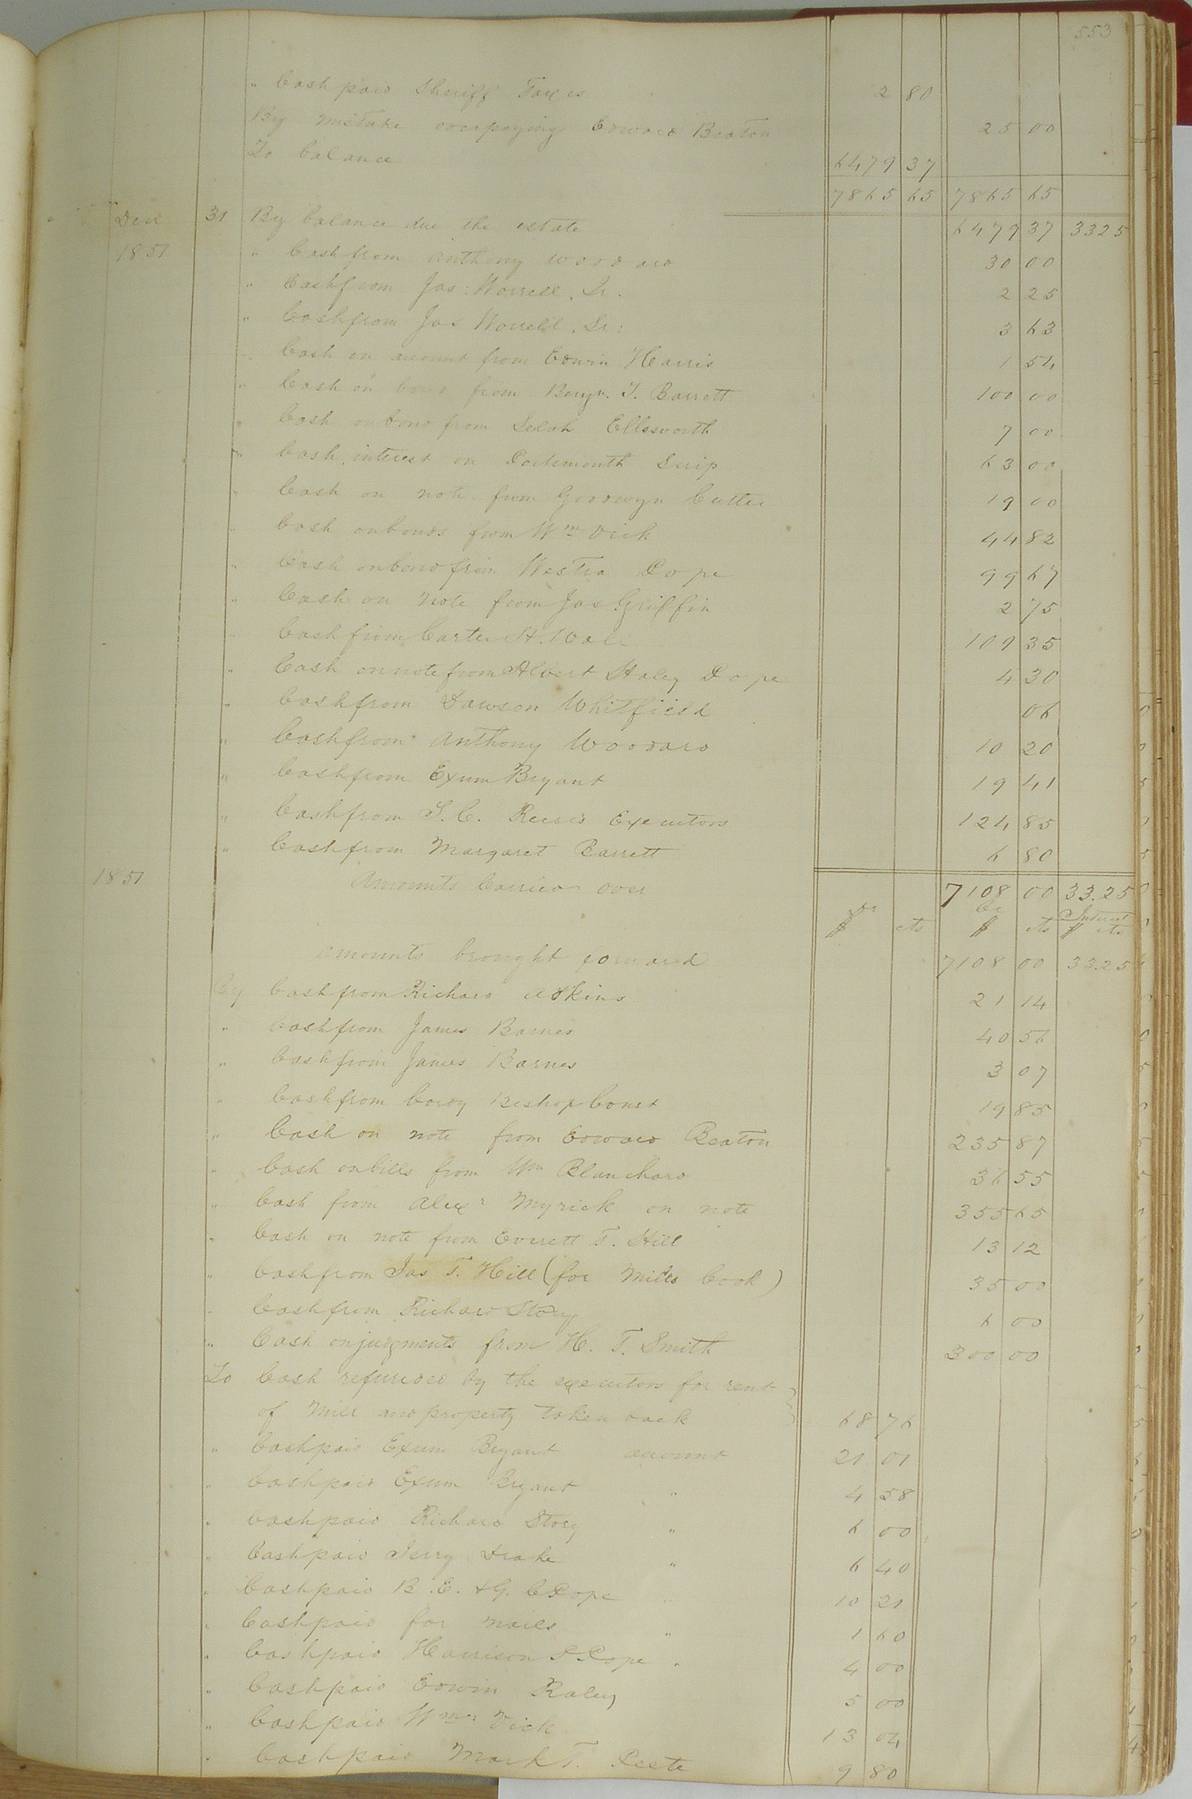 553
" Cash paid Sheriff Taxes 2 80
By mistake overpaying Edward Beaton 25 00
To balance 6479 37
7865 65 7865 65
Dec 31 By balance due the estate 6479 37 3325
1851 " Cash from Anthony Woodard 30 00
" Cash from Jas. Worrell, Sr. 2 25
" Cash from Jas Worrell, Sr. 3 63
" Cash on account from Edwin Harris 1 54
" Cash on bond from Benjn. T. Barrett 100 00
" Cash on bond from Selah Ellsworth 7 00
" Cash, interest on Portsmouth Scrip 63 00
" Cash on note from Goodwyn 19 00
" Cash on bonds from Wm Vick 44 82
" Cash on bond from Pope 99 67
" Cash on note from Jas Griffin 2 75
" Cash from Carter 109 35
" Cash on note from Albert Pope 4 30
" Cash from Dawson Whitfield 06
" Cash from Anthony Woodard 10 20
" Cash from Exum Bryant 19 41
" Cash from Executors 124 85
" Cash from Margaret Barrett 6 80
1851 Amounts Carried over 7108 00 33.25
$ Dr cts $ Cr cts Interest $ cts
amounts brought forward 7108 00 33.25
By Cash from Richard Adkins 21 14
" Cash from James Barnes 40 56
" Cash from James Barnes 3 07
" Cash from Bishop Const 19 85
" Cash on note from Edward Beaton 235 87
" Cash on bills from Wm Blanchard 36 55
" Cash from Alexr Myrick on note 355 65
" Cash on note from Everett T. Hill 13 12
" Cash from Jas T. Hill (for Mills Cook) 35 00
" Cash from Richard Story 6 00
" Cash on judgments from H. T. Smith 300 00
To Cash refunded by the executors for rent
of Mill and property taken back 68 76
" Cash paid Exum Bryant account 21 01
" Cash paid Exum Bryant " 4 58
" Cash paid Richard Story " 6 00
" Cash paid Jerry Drake " 6 40
" Cash paid B. E. & G. C Pope " 10 21
" Cash paid for nails " 1 60
" Cash paid Harrison P. Pope " 4 00
" Cash paid Edwin Raley 5 00
" Cash paid Wm Vick 13 04
" Cash paid Mark T. 9 80